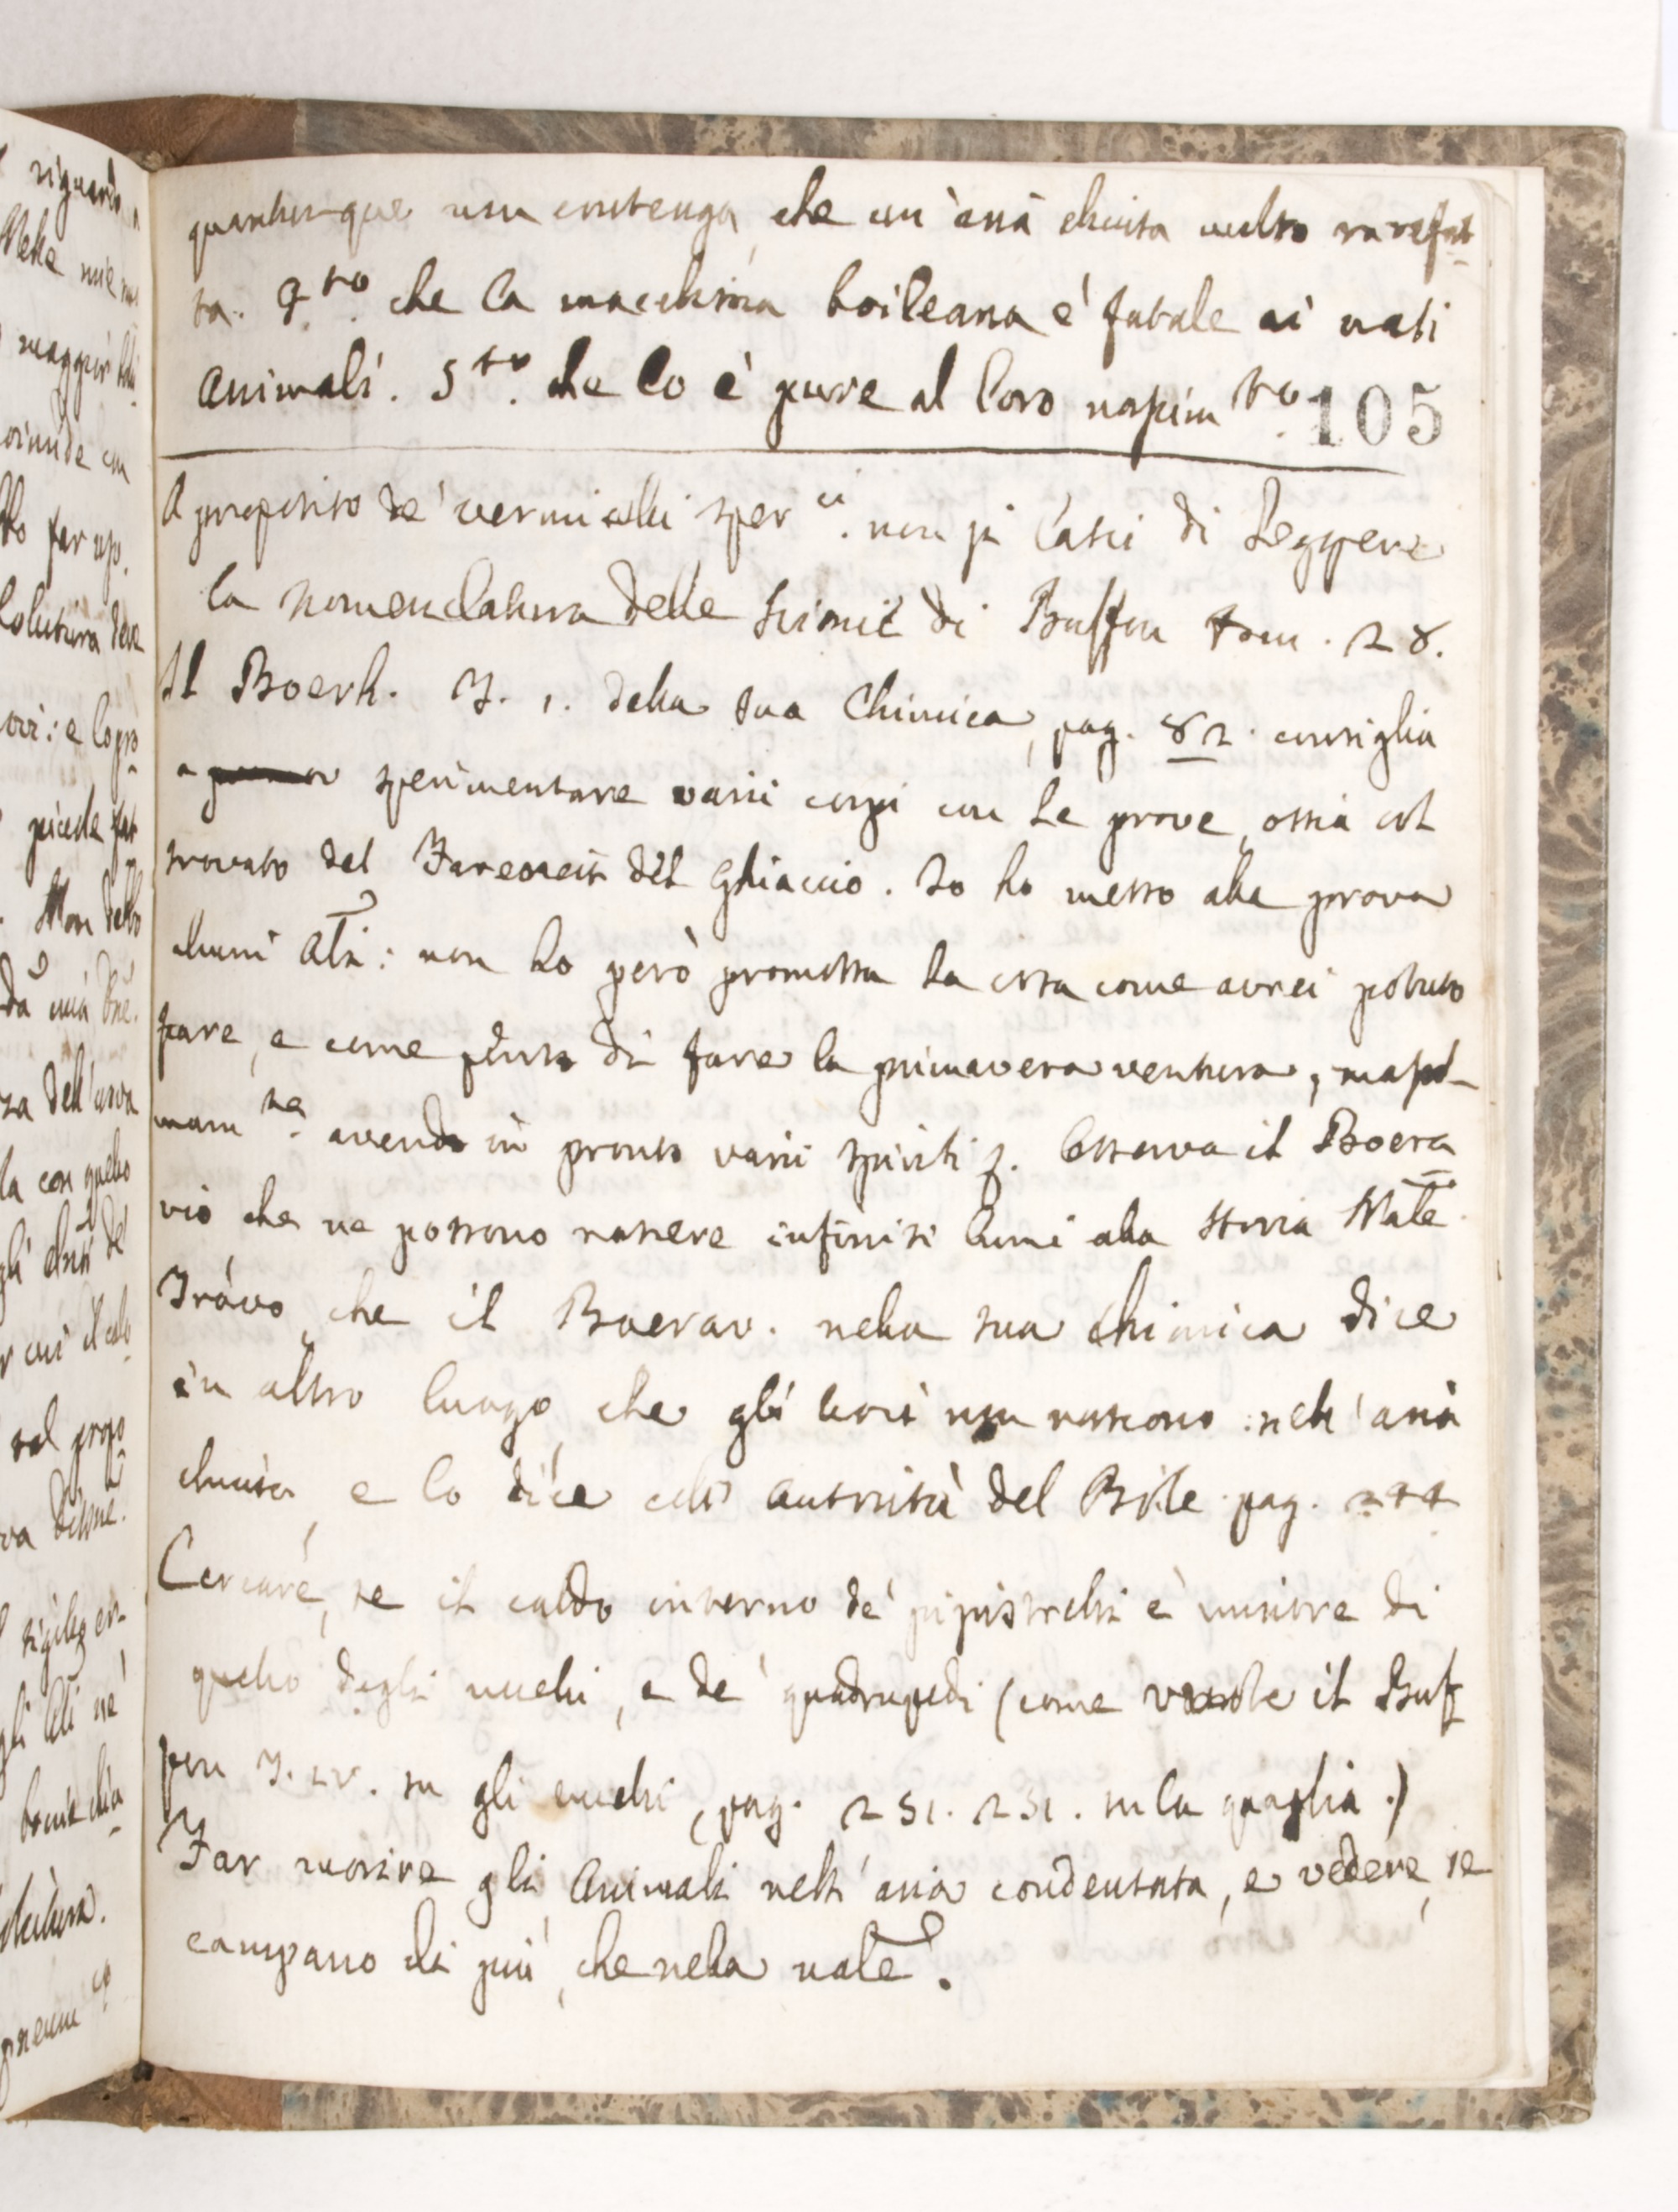 quantunque non contenga, che un'aria chiusa molto rarefat-
ta. 4.to che la macchina boileana è fatale ai nati
Animali. 5.to che lo è pure al loro nascim.to 105
A proposito de' vermicelli sper.ci non si lasci di leggere
la nomenclatura delle Scimie di Buffon tom. 28.
Il Boerh. T. 1. della sua Chimica, pag. 82. consiglia
a sperimentare varii corpi con le prove, ossia col
trovato del Fareneit del ghiaccio. Io ho messo alla prova
alcuni Ali: non ho però promossa la cosa come avrei potuto
fare, e come penso di fare la primavera ventura, massi-
mam.te avendo in pronto varii spiriti. Osserva il Boera
vio che ne possono nascere infiniti lumi alla Storia Nale.
Trovo, che il Boerav. nella sua chimica dice
in altro luogo, che gli ovi non nascono nell'aria
chiusa, e lo dice coll'autorità del Boile pag. 244
Cercare, se il caldo interno de' pipistrelli è minore di
quello degli uccelli, e de' quadrupedi (come vuole il Buf
fon T. IV. su gli uccelli, pag. 251. 251. sulla quaglia.)
Far morire gli Animali nell'aria condensata, e vedere, se
campano di più, che nella nale.
riguardo
Nelle mie
maggior
far uso.
deve
Non debbo
con quello